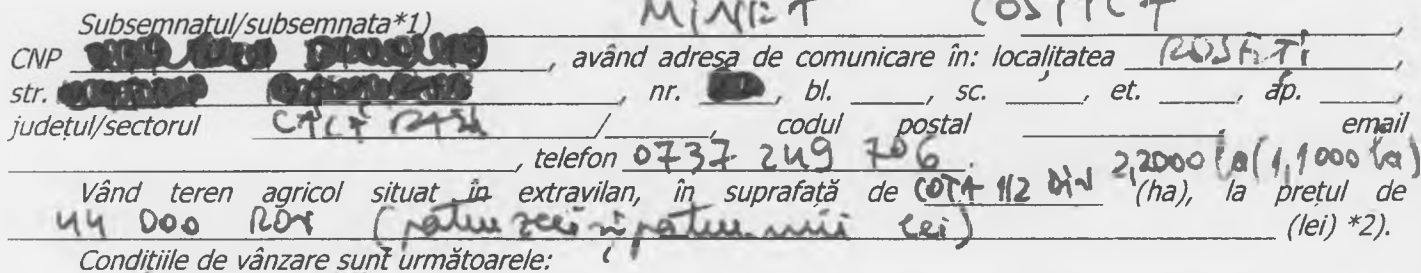 Subsemnatul/subsemnata*1) MINEA COSTICA,
CNP , având adresa de comunicare în: localitatea ROSETI,
str. , nr. , bl. , sc. , et. , ap. ,
județul/sectorul CALARASI / , codul poștal , email
, telefon 0737 249 706.
Vând teren agricol situat în extravilan, în suprafață de COTA 1/2 DIN 2,2000 ha (1,1000 ha) (ha), la prețul de
44 000 RON (patru zeci și patru mii lei) (lei) *2).
Condițiile de vânzare sunt următoarele: